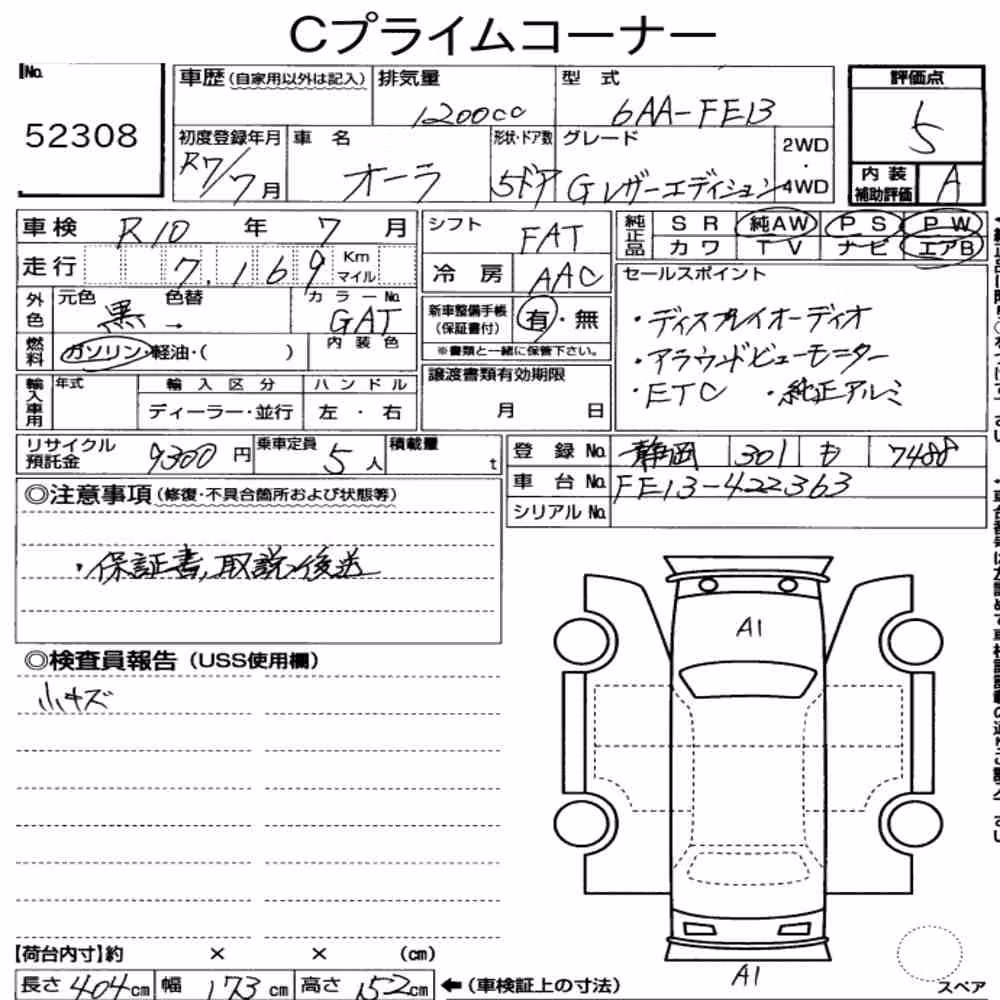 Cプライムコーナー
No.
52308
車歴(自家用以外は記入)
排気量
1200cc
型 式
6AA-FE13
評価点
5
初度登録年月
R7/7月
車 名
オーラ
形状・ドア数
5ドア
グレード
Gレザーエディション
2WD
・
4WD
内 装
補助評価
A
車検 R10 年 7 月
シフト
FAT
純正品
SR 純AW PS PW
カワ TV ナビ エアB
走行 7.169 Km
マイル
冷 房
AAC
セールスポイント
・ディスプレイオーディオ
・アラウンドビューモニター
・ETC ・純正アルミ
外色
元色 色替
黒 →
カラーNo.
GAT
新車整備手帳
(保証書付)
有・無
※書類と一緒に保管下さい。
燃料
ガソリン・軽油・( )
内装色
輸入車用
年式
輸入区分
ハンドル
ディーラー・並行
左・右
譲渡書類有効期限
月 日
リサイクル
預託金
9300円
乗車定員
5人
積載量
t
登録No. 静岡 301 も 7488
車台No. FE13-422363
シリアルNo.
◎注意事項(修復・不具合箇所および状態等)
・保証書,取説後送
◎検査員報告(USS使用欄)
小キズ
A1
A1
【荷台内寸】約 × × (cm)
長さ 404cm 幅 173cm 高さ 152cm ←(車検証上の寸法)
スペア